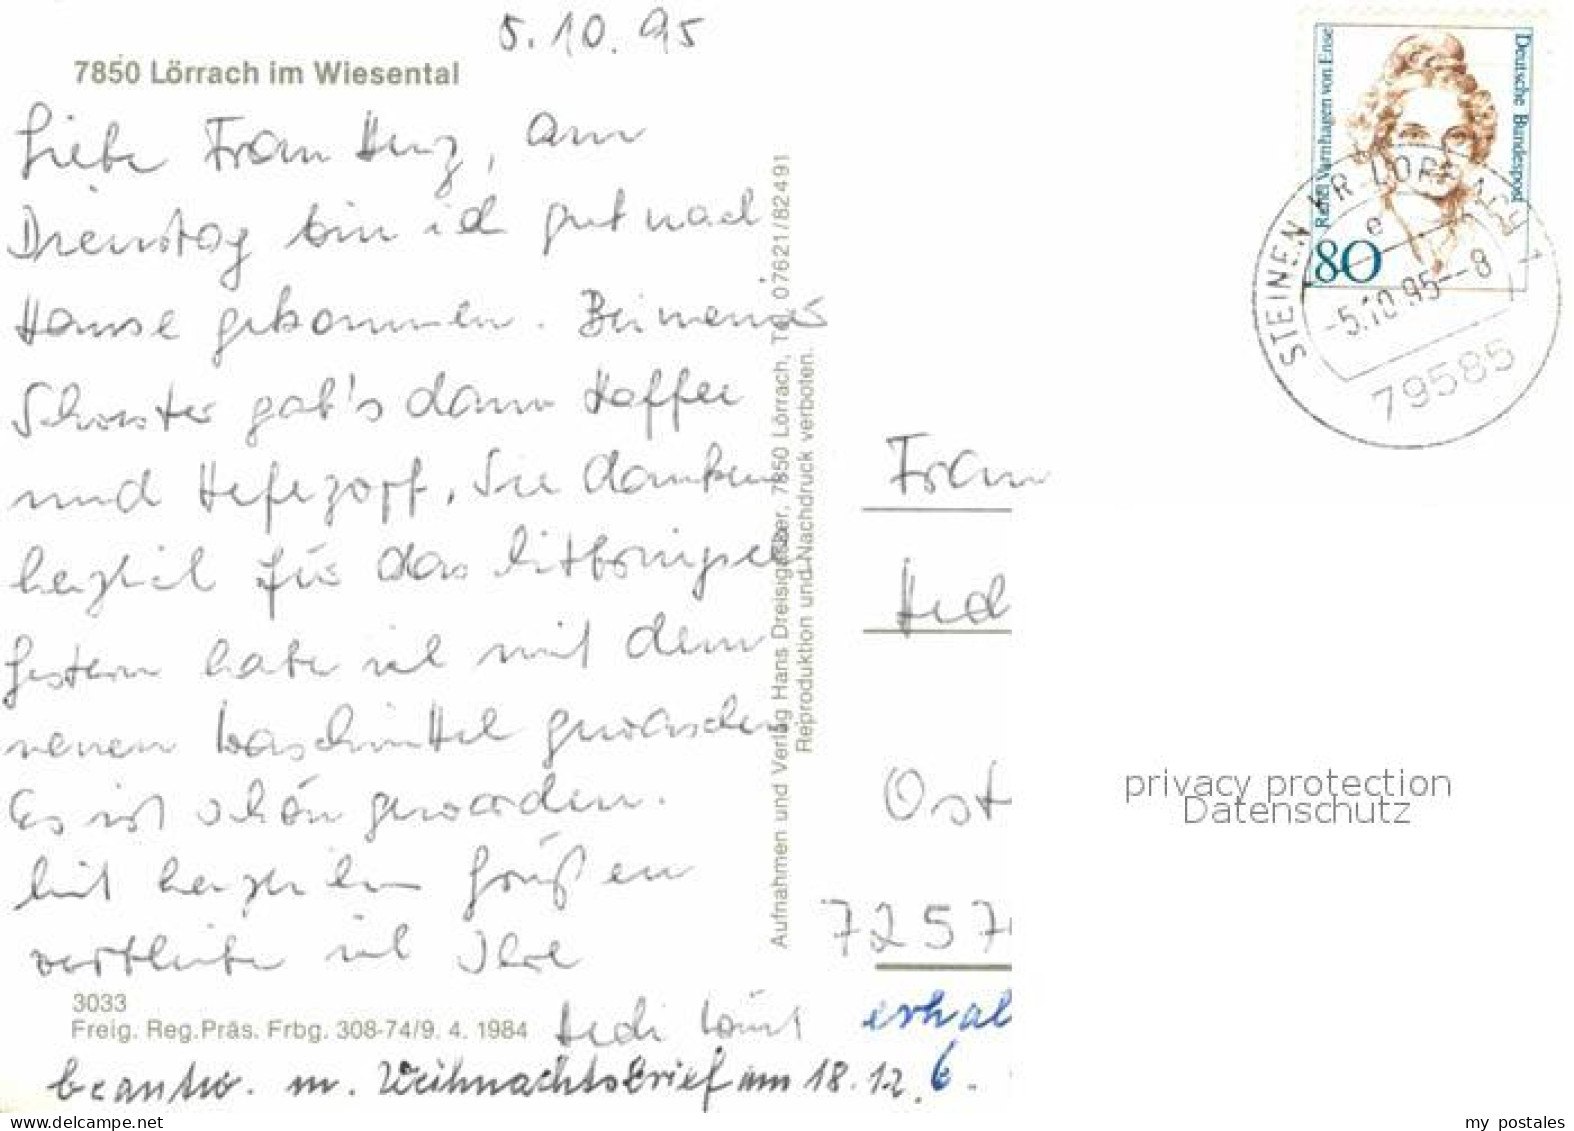 5.10.95
7850 Lörrach im Wiesental
Liebe Frau Herz, am
Dienstag bin ich gut nach
Hause gekommen. Bei meiner
Schwester gab's dann Kaffee
und Hefezopf. Sie danken
herzlich für das Mitbringsel
Gestern habe ich mit dem
neuen Waschmittel gewaschen
Es ist schön geworden.
Mit herzlichen Grüßen
verbleibe ich Ihre
Hedi
3033
Freig. Reg.Präs. Frbg. 308-74/9. 4. 1984
beantw. m. Weihnachtsbrief am 18.12.
Aufnahmen und Verlag Hans Dreisigacker, 7850 Lörrach, Tel. 07621/82491
Reproduktion und Nachdruck verboten.
Deutsche Bundespost
Rahel Varnhagen von Ense
80
STEINEN KR LÖRRACH 1
e
-5.10.95--8
79585
Frau
Hed
Ost
7257
erhal
6.
privacy protection
Datenschutz
www.delcampe.net
my_postales